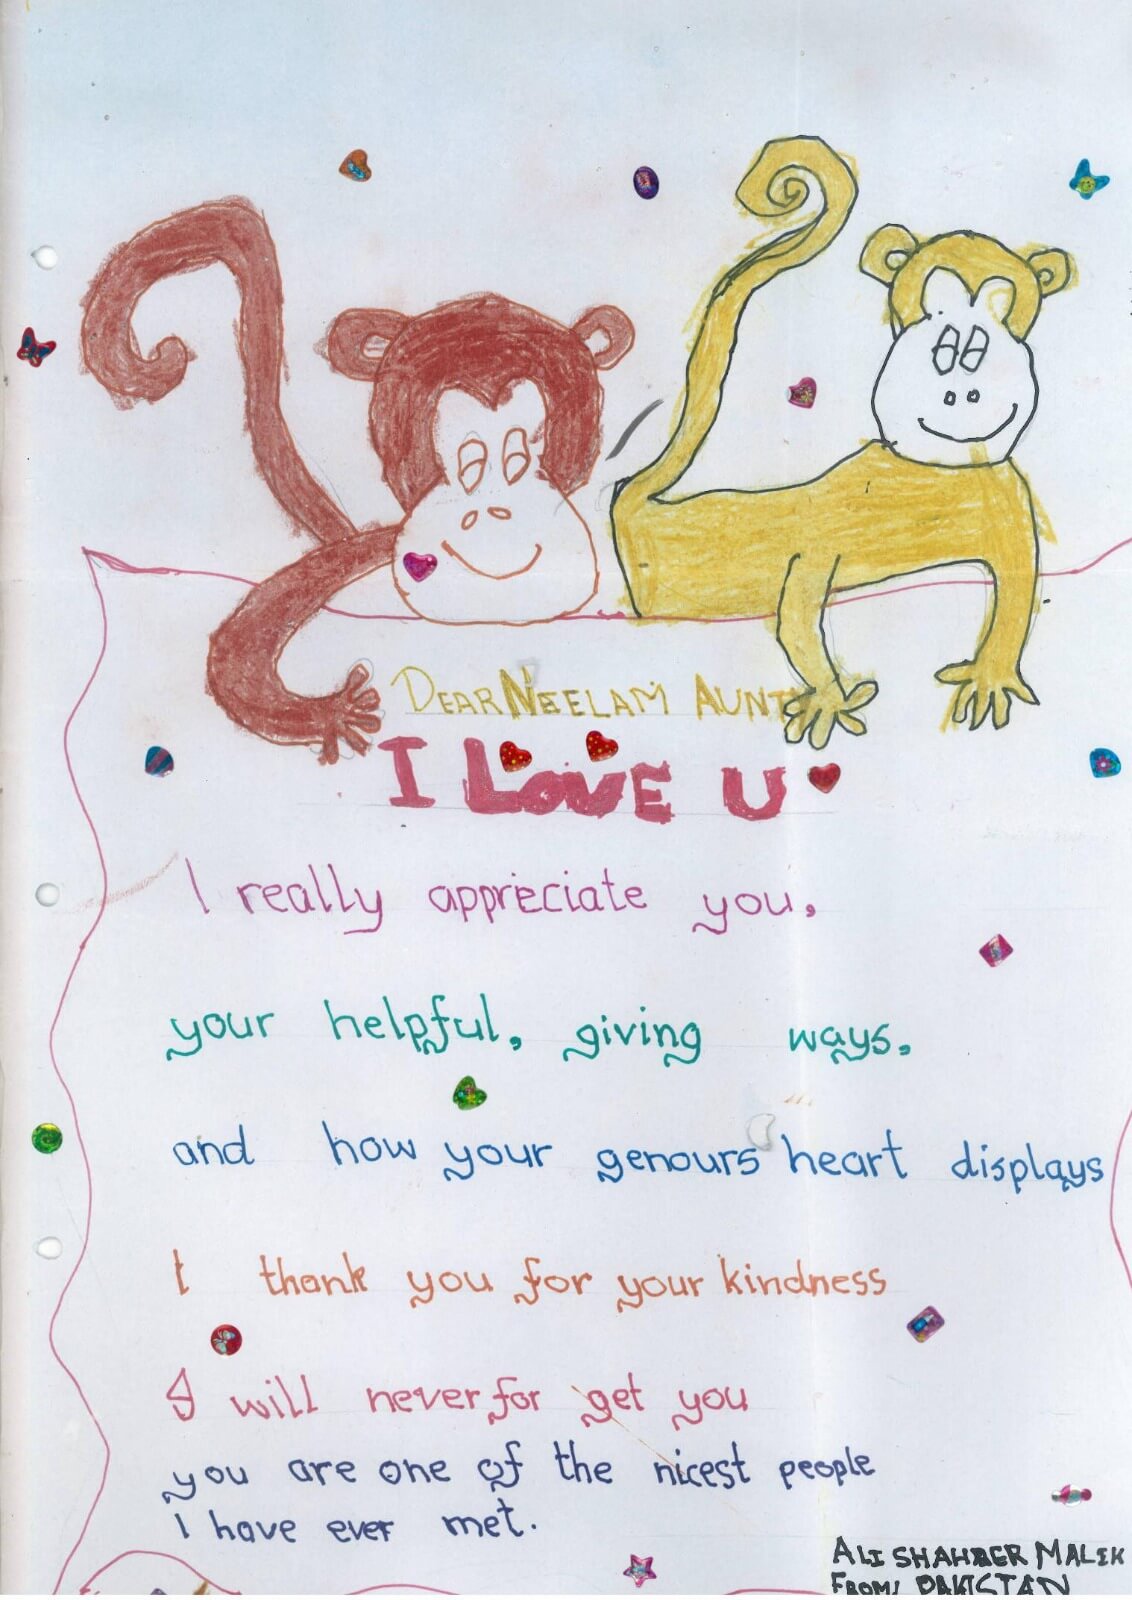 DEAR NEELAM AUNTY
I LOVE U
I really appreciate you,
your helpful, giving ways,
and how your genours heart displays
I thank you for your kindness
I will never for get you
you are one of the nicest people
I have ever met.
ALI SHAHBER MALIK
FROM/ PAKISTAN